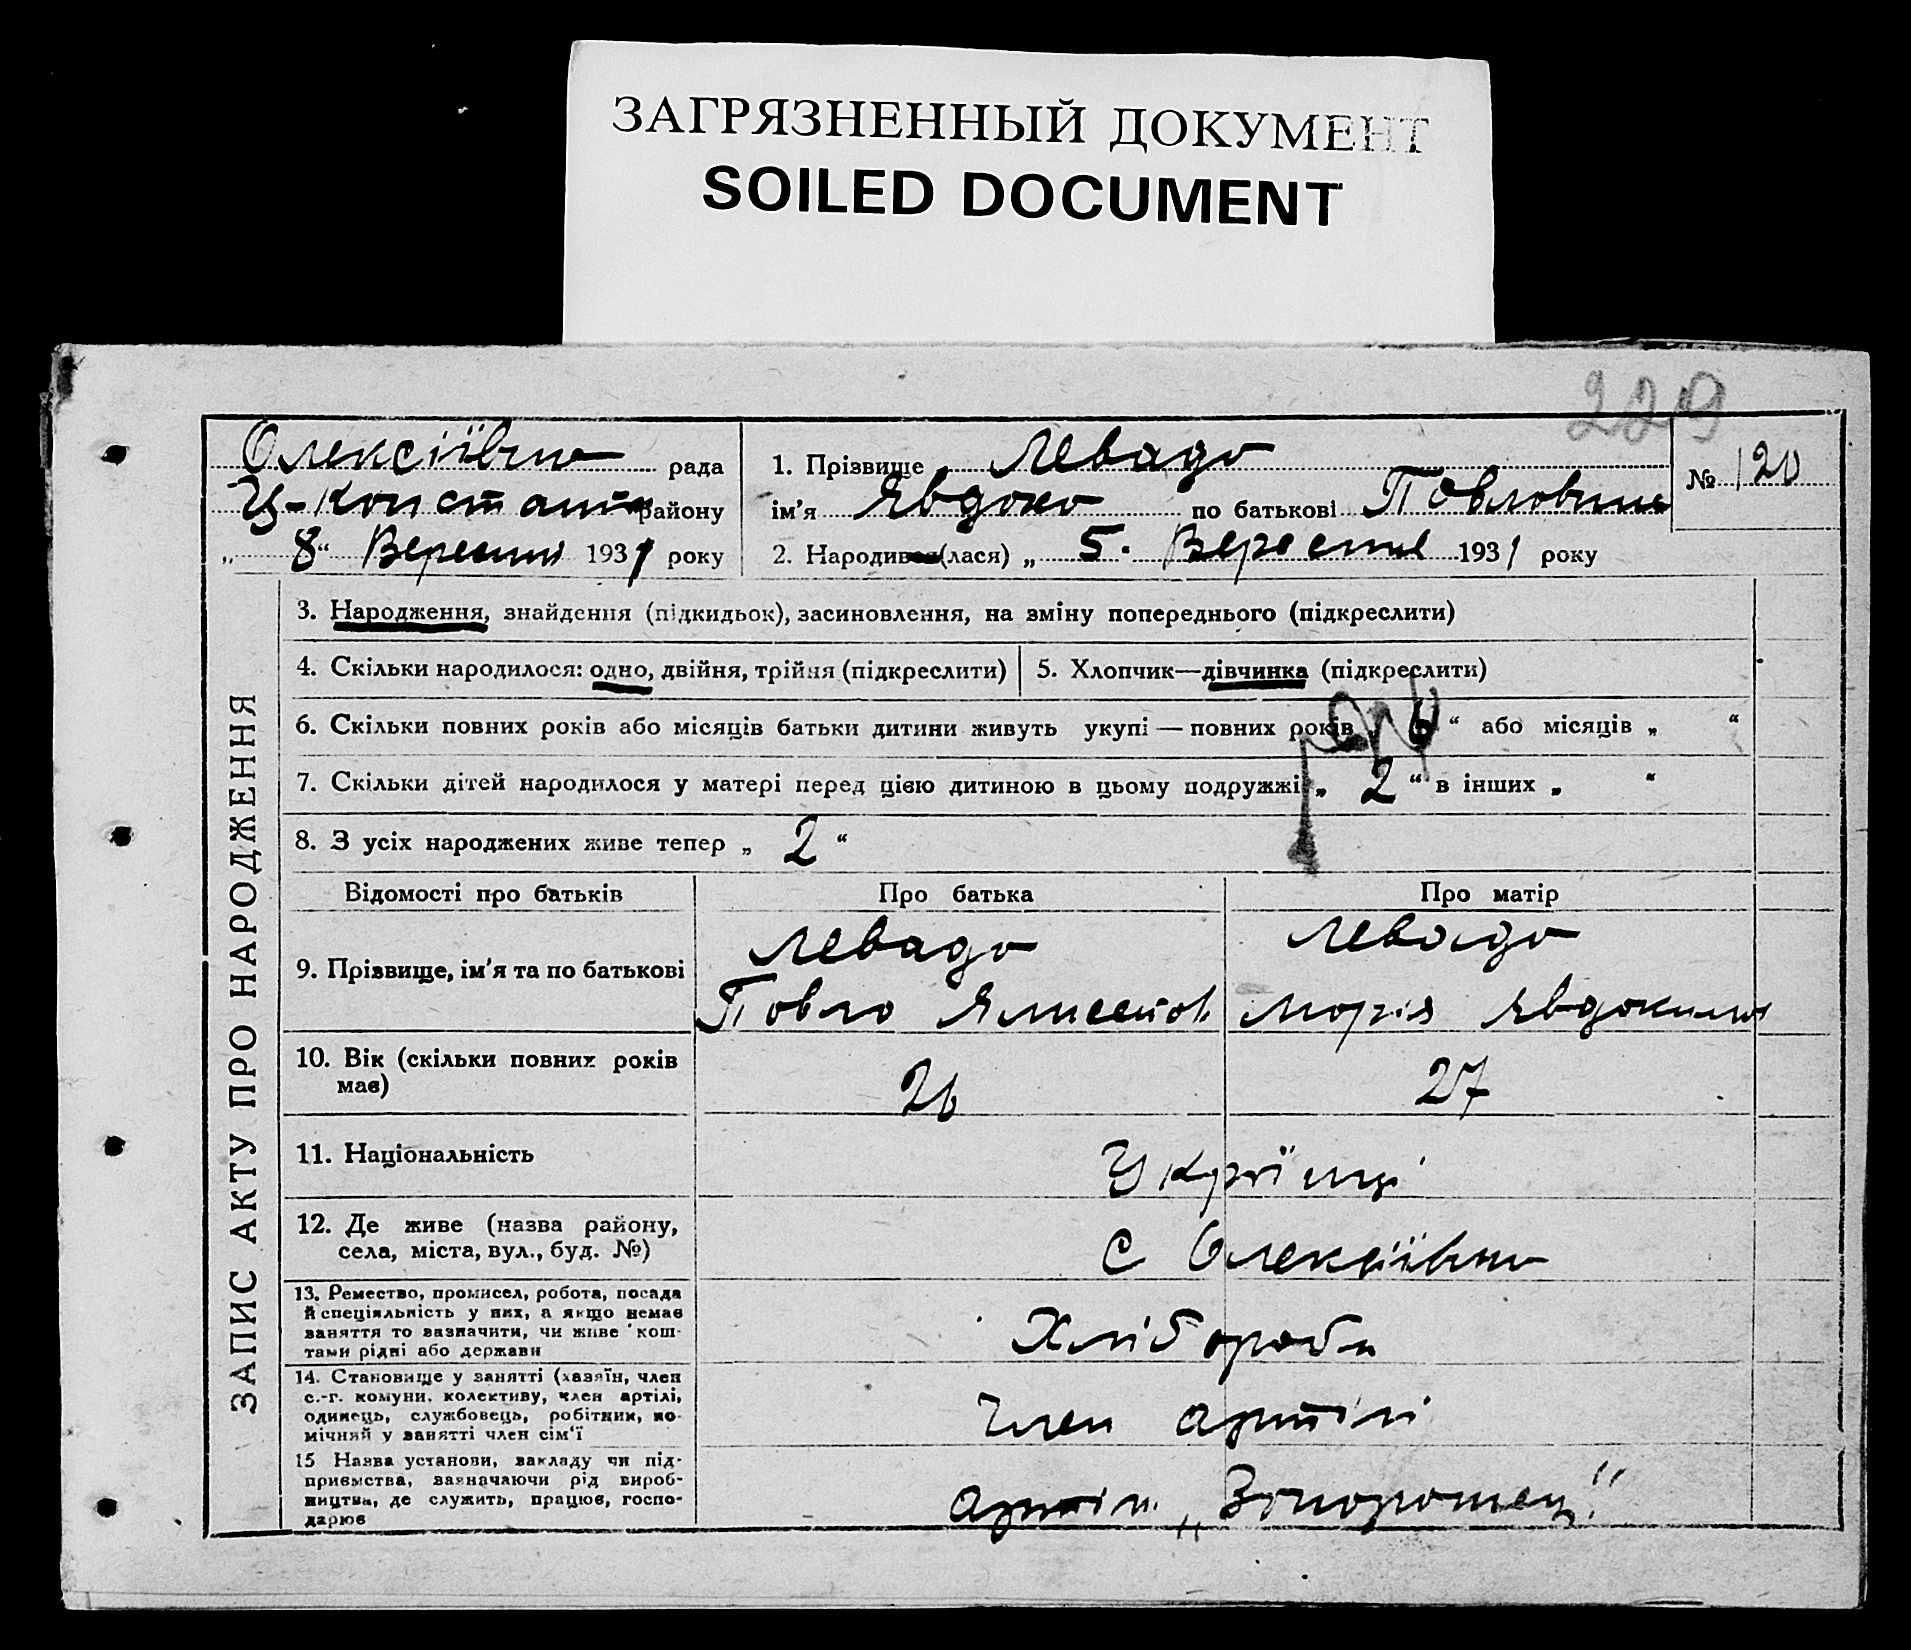 ЗАГРЯЗНЕННЫЙ ДОКУМЕНТ
SOILED DOCUMENT
229
Олексіївна рада
Ц-Констант району
„ 8 “ Вересня 1931 року
1. Прізвище Левадо
ім'я Явдоха по батькові Повловна
№ 120
2. Народився (лася) „ 5. Вересня 1931 року
ЗАПИС АКТУ ПРО НАРОДЖЕННЯ
3. Народження, знайдення (підкидьок), засиновлення, на зміну попереднього (підкреслити)
4. Скільки народилося: одно, двійня, трійня (підкреслити)
5. Хлопчик—дівчинка (підкреслити)
6. Скільки повних років або місяців батьки дитини живуть укупі — повних років „ 6 “ або місяців „ “
7. Скільки дітей народилося у матері перед цією дитиною в цьому подружжі „ 2 “ в інших „ “
8. З усіх народжених живе тепер „ 2 “
Відомості про батьків Про батька Про матір
9. Прізвище, ім'я та по батькові
Левадо
Повло
Левадо
Морія
10. Вік (скільки повних років
має)
26
27
11. Національність
Українці
12. Де живе (назва району,
села, міста, вул., буд. №)
С Олексіївна
13. Ремество, промисел, робота, посада
й спеціяльність у них, а якщо немає
заняття то зазначити, чи живе кош-
тами рідні або держави
Хлібороби
14. Становище у занятті (хазяїн, член
с.-г. комуни, колективу, член артілі,
одинець, службовець, робітник, по-
мічняй у занятті член сім'ї
Член артілі
15 Назва установи, закладу чи під-
приємства, зазначаючи рід вироб-
ництва, де служить, працює, госпо-
дарює
Артіль „Зопорожец“